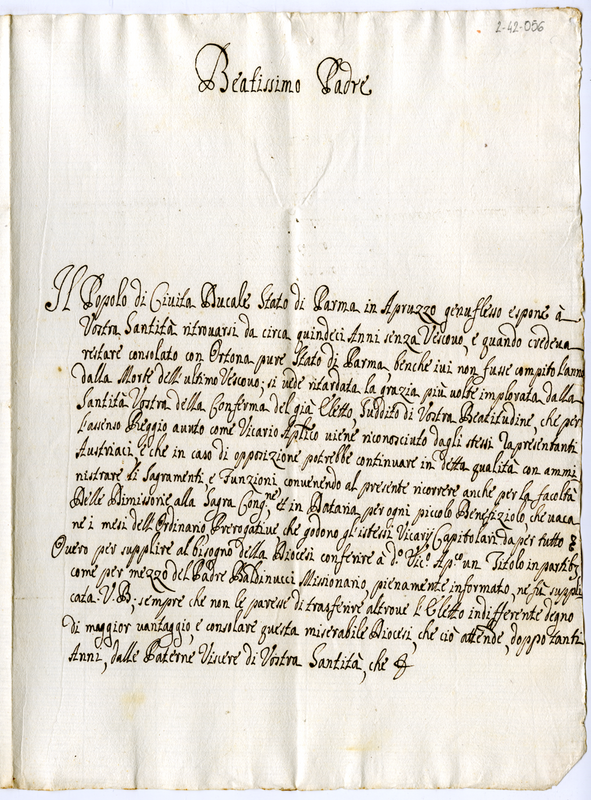 2-42-056
Beatissimo Padre
Il Popolo di Civita Ducale Stato di Parma in Apruzzo genuflesso espone à
Vostra Santità ritrouarsi da circa quindeci Anni senza Vescouo, e quando credeua
restare consolato con Ortona pure Stato di Parma, benche iui non fusse compito l'anno
dalla Morte dell'ultimo Vescouo; si uede ritardata la grazia più uolte implorata dalla
Santità Vostra della Conferma del già Eletto, Suddito di Vostra Beatitudine, che per
l'assenso Reggio auuto come Vicario Aplico uiene riconosciuto dagli stessi Rapresentanti
Austriaci, e che in caso di opposizione potrebbe continuare in detta qualità con ammi
nistrare li Sagramenti, e Funzioni conuenendo al presente ricorrere anche per la facoltà
Delle Dimissorie alla Sagra Congne, et in Dataria per ogni piccolo Benefiziolo, che uaca
ne i mesi dell'Ordinario Prerogatiue che godono gl'istessi Vicarij Capitolari da per tutto
Ouero per supplire al bisogno della Diocesi conferire a do Vico Apco un Titolo in partibz
come per mezzo del Padre Baldinucci Missionario, pienamente informato, ne fù suppli
cata V. B.; sempre che non le paresse di trasferire altroue l'Eletto indifferente degno
di maggior uantaggio, e consolare questa miserabile Diocesi, che ciò attende, doppo tanti
Anni, dalle Paterne Viscere di Vostra Santità, che